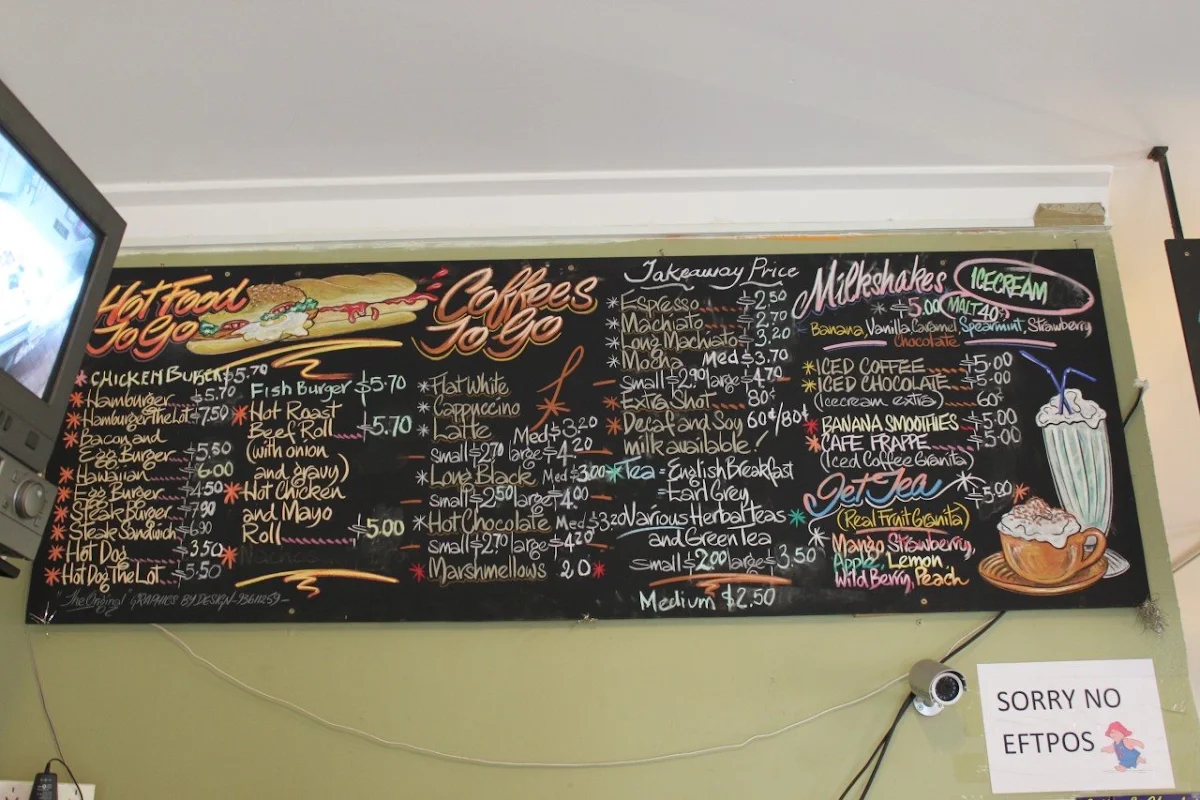 Hot Food
To Go
CHICKEN BURGER $5.70
Hamburger $5.70
Hamburger The Lot $7.50
Bacon and
Egg Burger $5.50
Hawaiian $6.00
Egg Burger $4.50
Steak Burger $7.90
Steak Sandwich $6.90
Hot Dog $3.50
Hot Dog The Lot $5.50
"The Original" GRAPHICS BY DESIGN
Fish Burger $5.70
Hot Roast
Beef Roll $5.70
(with onion
and gravy)
Hot Chicken
and Mayo
Roll $5.00
Nachos
Coffees
To Go
Flat White
Cappuccino
Latte Med $3.20
Small $2.70 large $4.20
Long Black Med $3.00
Small $2.50 large $4.00
Hot Chocolate Med $3.20
Small $2.70 large $4.20
Marshmallows 20
Takeaway Price
Espresso $2.50
Machiato $2.70
Long Machiato $3.20
Mocha Med $3.70
Small $2.90 large $4.70
Extra Shot 80¢
Decaf and Soy 60¢/80¢
milk available!
Tea = English Breakfast
= Earl Grey
Various Herbal Teas
and Green Tea
Small $2.00 large $3.50
Medium $2.50
Milkshakes
ICECREAM
$5.00 MALT 40¢
Banana, Vanilla, Caramel, Spearmint, Strawberry
Chocolate
ICED COFFEE $5.00
ICED CHOCOLATE $5.00
(Icecream extra) 60¢
BANANA SMOOTHIES $5.00
CAFE FRAPPE $5.00
(Iced Coffee Granita)
Jet Tea $5.00
(Real Fruit Granita)
Mango, Strawberry,
Apple, Lemon
Wild Berry, Peach
SORRY NO
EFTPOS